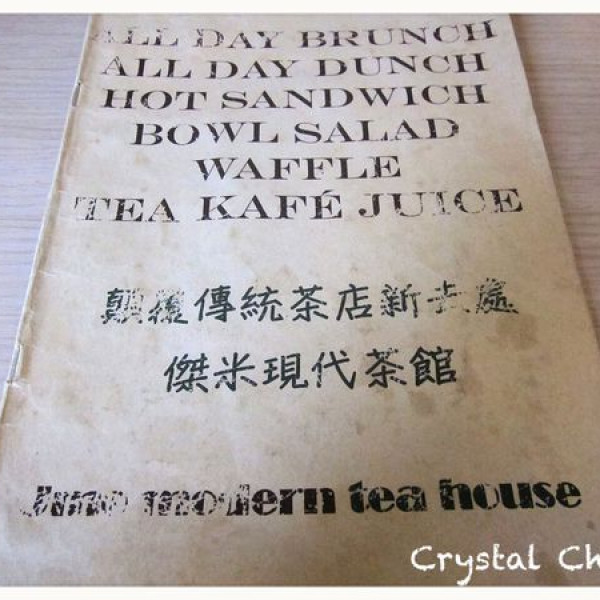 ALL DAY BRUNCH
ALL DAY DUNCH
HOT SANDWICH
BOWL SALAD
WAFFLE
TEA KAFÉ JUICE
顛覆傳統茶店新去處
傑米現代茶館
modern tea house
Crystal Ch